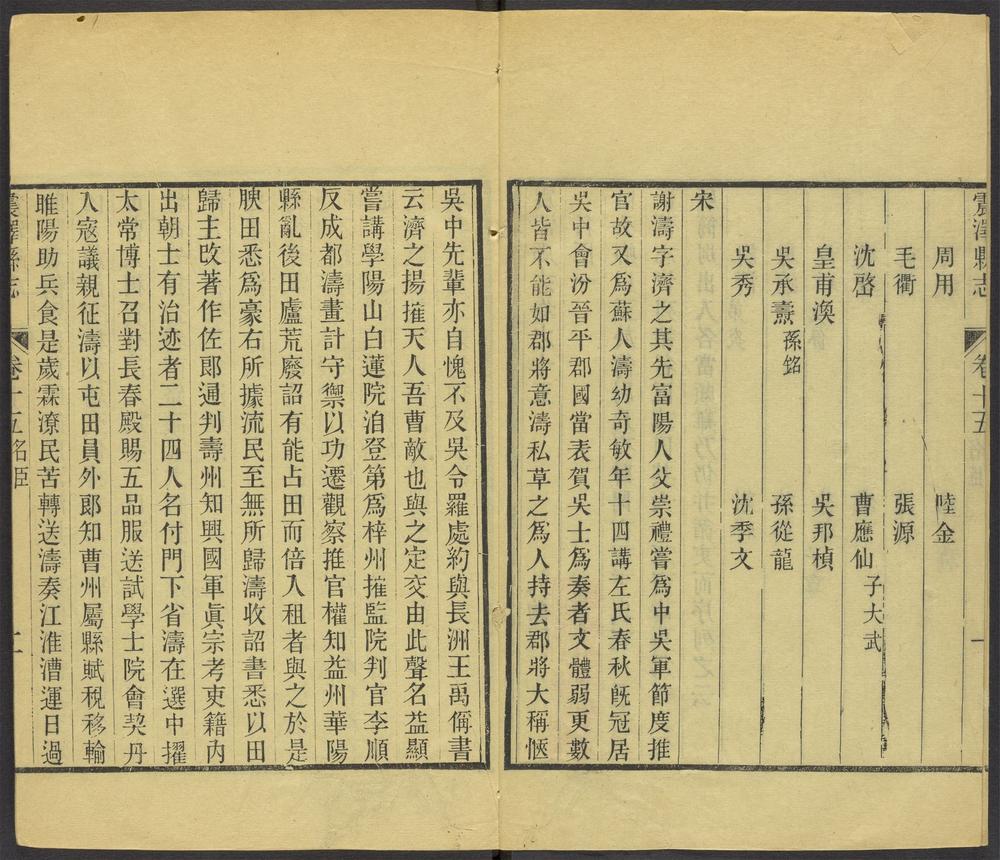 震澤縣志　卷十五　名臣　一
周用　陸金
毛衢　張源
沈啓　曹應仙子大武
皇甫渙　吳邦楨
吳承燾孫銘　孫從龍
吳秀　沈季文
宋
謝濤字濟之其先富陽人父崇禮嘗爲中吳軍節度推
官故又爲蘇人濤幼奇敏年十四講左氏春秋旣冠居
吳中會汾晉平郡國當表賀吳士爲奏者文體弱更數
人皆不能如郡將意濤私草之爲人持去郡將大稱愜
吳中先輩亦自愧不及吳令羅處約與長洲王禹偁書
云濟之揚摧天人吾曹敵也與之定交由此聲名益顯
嘗講學陽山白蓮院洎登第爲梓州搉監院判官李順
反成都濤畫計守禦以功遷觀察推官權知益州華陽
縣亂後田廬荒廢詔有能占田而倍入租者與之於是
腴田悉爲豪右所據流民至無所歸濤收詔書悉以田
歸主改著作佐郎通判壽州知興國軍眞宗考吏籍内
出朝士有治迹者二十四人名付門下省濤在選中擢
太常博士召對長春殿賜五品服送試學士院會契丹
入寇議親征濤以屯田員外郎知曹州屬縣賦稅移輸
睢陽助兵食是歲霖潦民苦轉送濤奏江淮漕運日過
震澤縣志　卷十五　名臣　二